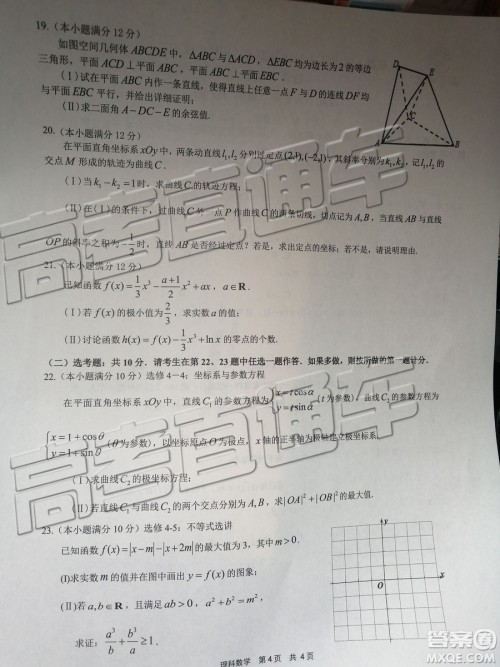 19.（本小题满分12分）
如图空间几何体ABCDE中，ΔABC与ΔACD，ΔEBC均为边长为2的等边
三角形，平面ACD⊥平面ABC，平面ABC⊥平面EBC．
（Ⅰ）试在平面ABC内作一条直线，使得直线上任意一点F与D的连线DF均
与平面EBC平行，并给出详细证明；
（Ⅱ）求二面角A−DC−E的余弦值．
D
E
C
A
B
20.（本小题满分12分）
在平面直角坐标系xOy中，两条动直线l₁,l₂分别过定点(2,1),(-2,1)，其斜率分别为k₁,k₂，记l₁,l₂的
交点M形成的轨迹为曲线C．
（Ⅰ）当k₁−k₂=1时，求曲线C的轨迹方程；
（Ⅱ）在（Ⅰ）的条件下，过曲线C外一点P作曲线C的两条切线，切点记为A，B，当直线AB与直线
OP的斜率之积为−1/2时，直线AB是否经过定点？若是，求出定点的坐标；若不是，请说明理由．
21.（本小题满分12分）
已知函数f(x)=1/3x³−(a+1)/2x²+ax，a∈R．
（Ⅰ）若f(x)的极小值为2/3，求实数a的值；
（Ⅱ）讨论函数h(x)=f(x)−1/3x³+lnx的零点的个数．
（二）选考题：共10分．请考生在第22、23题中任选一题作答．如果多做，则按所做的第一题计分．
22.（本小题满分10分）选修4−4：坐标系与参数方程
在平面直角坐标系xOy中，直线C₁的参数方程为{x=tcosα y=tsinα（t为参数），曲线C₂的参数方程为
{x=1+cosθ y=1+sinθ（θ为参数），以坐标原点O为极点，x轴的正半轴为极轴建立极坐标系．
（Ⅰ）求曲线C₂的极坐标方程；
（Ⅱ）若直线C₁与曲线C₂的两个交点分别为A,B，求|OA|²+|OB|²的最大值．
23.（本小题满分10分）选修4-5：不等式选讲
已知函数f(x)=|x−m|−|x+2m|的最大值为3，其中m>0．
(Ⅰ)求实数m的值并在图中画出y=f(x)的图像；
(Ⅱ)若a,b∈R，且满足ab>0，a²+b²=m²，
求证：a³/b+b³/a≥1．
y
O
x
理科数学 第4页 共4页
高考直通车
高考直通车
答案圈
MXQE.COM